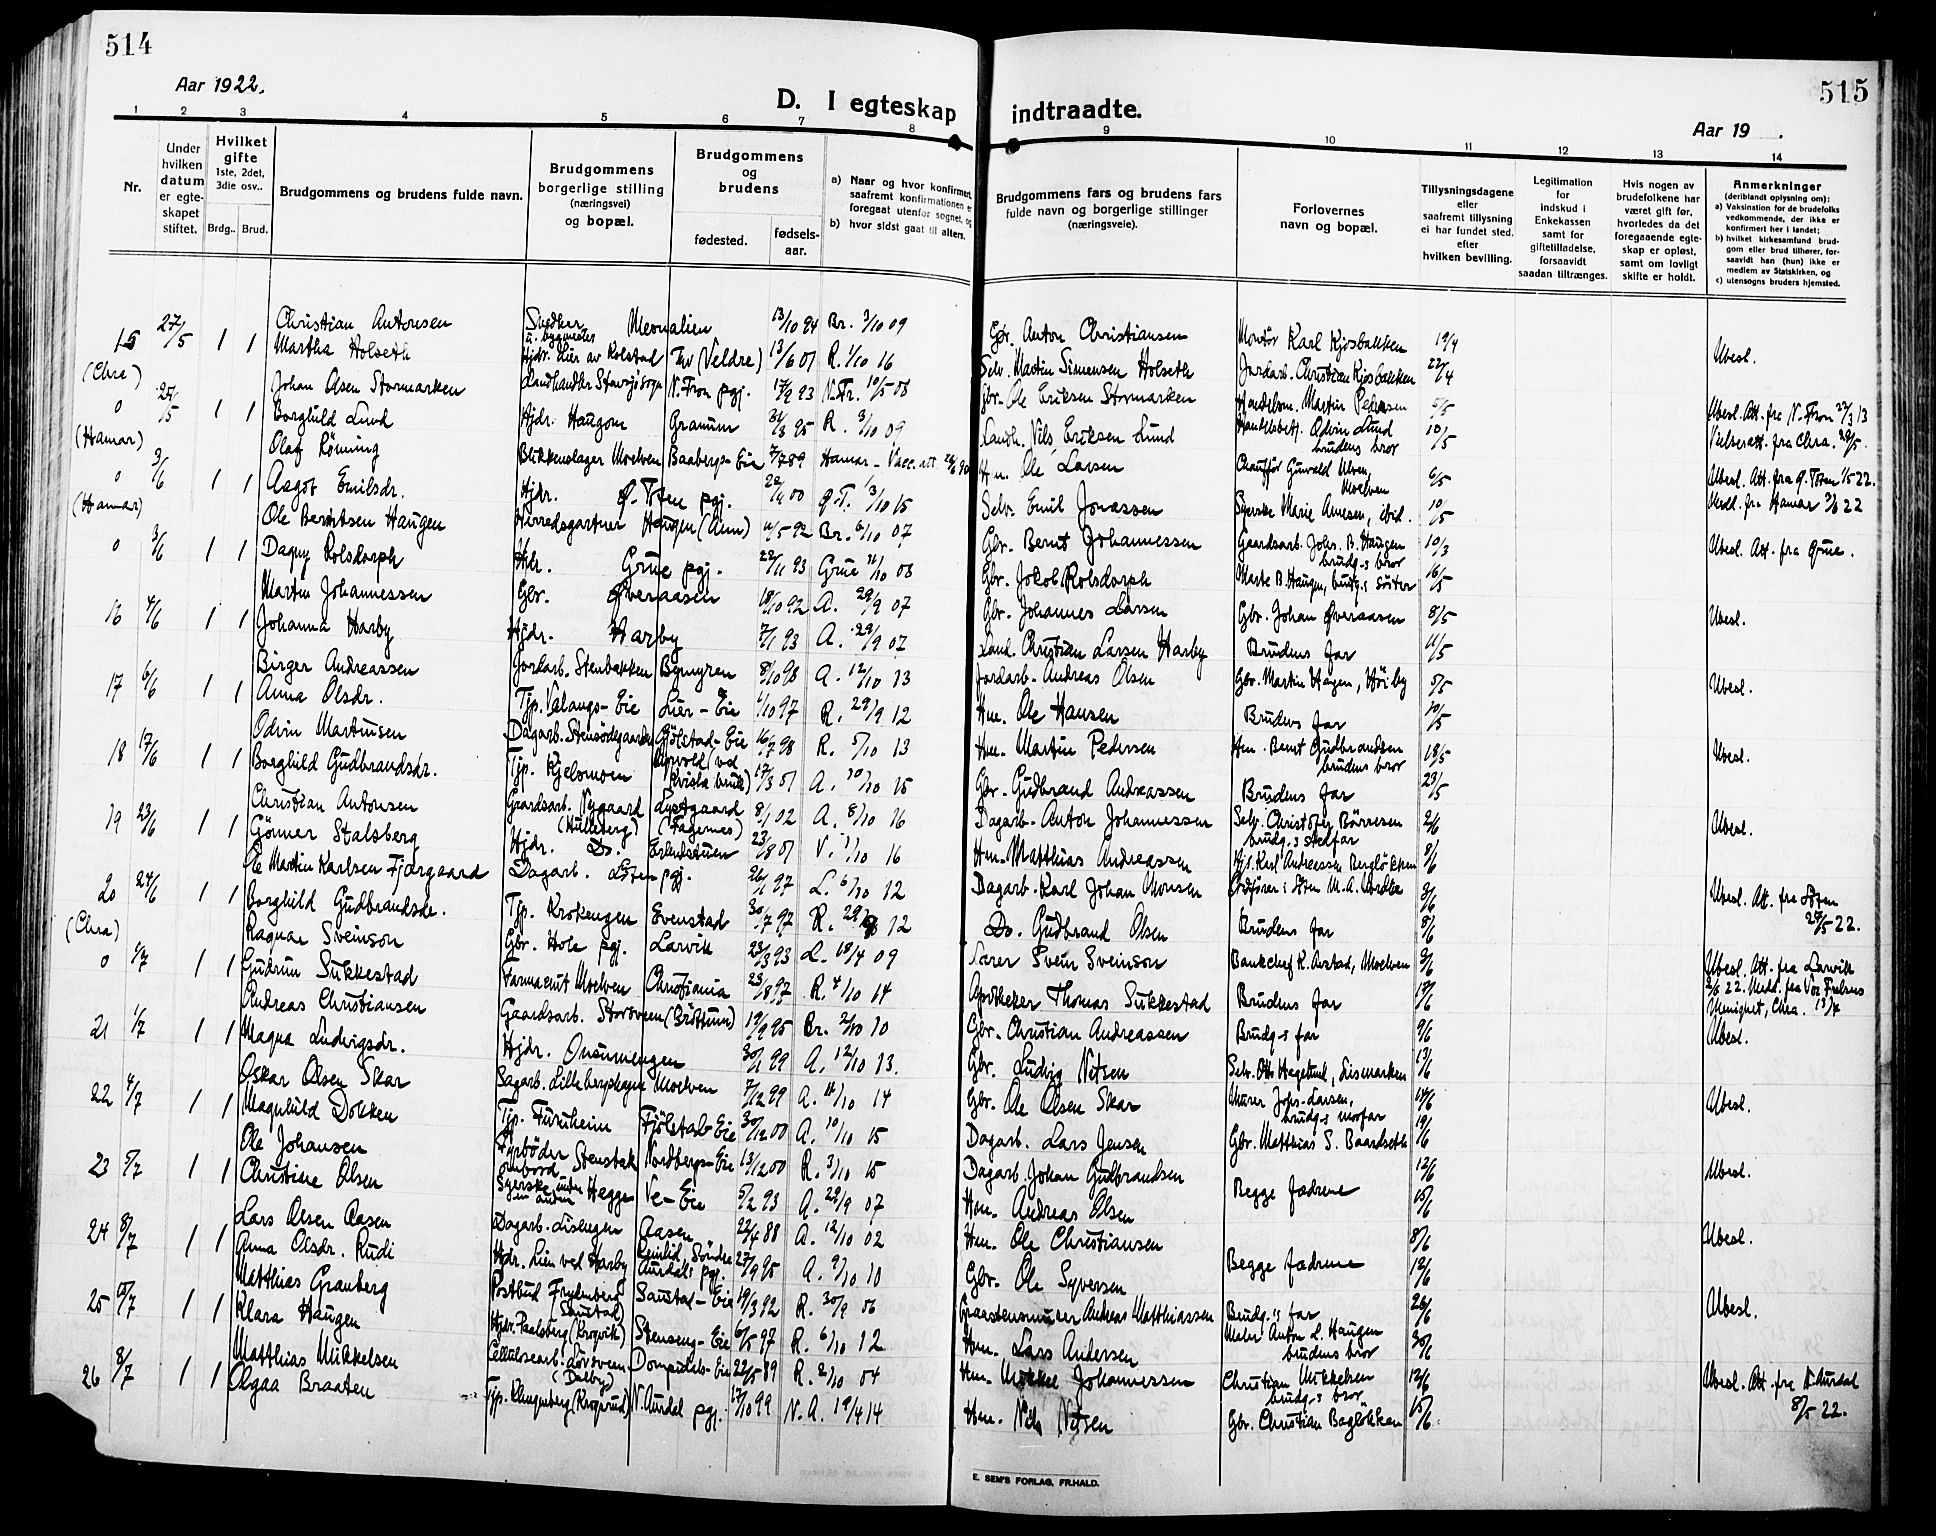 514
Aar 1922.
D. I egteskap
1 2 3 4 5 6 7 8
Nr.
Under hvilken datum er egteskapet stiftet.
Hvilket gifte
1ste, 2det, 3die osv..
Brdg.. Brud.
Brudgommens og brudens fulde navn.
Brudgommens borgerlige stilling (næringsvei) og bopæl.
Brudgommens og brudens
fødested.
fødsels-aar.
a) Naar og hvor konfirmert, saafremt konfirmationen e foregaat utenfor sognet, og
b) hvor sidst gaat til alters.
15 27/5 1 1 Christian Antonsen
Snedker u. bygmester Meonalien 13/10 94 Br. 3/10 09
Martha Holseth
Hjdr. Lier av Rolstad Thv (Veldre) 13/6 01 R. 1/10 16
(Chra)
Johan Olsen Stormarken
Landhandler Stavsjø sogn N. Fron pgj. 17/2 93 N. Fr. 10/5 08
0 25/5 1 1 Borghild Lund
Hjdr. Haugom Granum 31/3 95 R. 3/10 09
(Hamar)
Olaf Rönning
Blikkenslager Moelven Baabergs-Eie 7/7 89 Hamar - Vacc. att.
0 3/6 1 1 Aagot Emilsdr.
Hjdr. Ø. Toten pgj. 22/4 00 Ø.T. 1/10 15
(Hamar)
Ole Berntsen Haugen
Herredsgartner Haugen (Aum) 11/5 92 Br. 6/10 07
0 3/6 1 1 Dagny Rolsdorph
Hjdr. Grue pgj. 22/11 93 Grue 11/10 08
Martin Johannessen
Gbr. Øveraasen 18/10 92 A. 29/9 07
16 4/6 1 1 Johanna Harby
Hjdr. Harby 7/1 93 A. 29/9 07
Birger Andreassen
Jordarb. Stenbakken Bymyren 8/10 98 A. 12/10 13
17 6/6 1 1 Anna Olsdr.
Tjp. Valangs-Eie Lier-Eie 1/10 97 R. 29/9 12
Odvin Martinsen
Dagarb. Stensødegaarden Gjölstad-Eie 16/7 98 R. 5/10 13
18 17/6 1 1 Borghild Gudbrandsdr.
Tjp. Kjelsmoen 17/3 01 A. 10/10 15
Christian Antonsen
Gaardsarb. Nygaard (Hulleberg) Lystgaard (Fagernes) 8/1 02 A. 8/10 16
19 23/6 1 1 Gönner Stalsberg
Hjdr. Do. Erlandstuen 23/8 01 V. 1/10 16
Ole Martin Karlsen Fjærgaard
Dagarb. Löten pgj. 26/1 97 L. 6/10 12
20 24/6 1 1 Borghild Gudbrandsdr.
Tjp. Krokengen Evenstad 30/7 97 R. 29/9 12
(Chra)
Ragnar Sveinson
Gbr. Hole pgj. Larvik 23/3 93 L. 18/4 09
0 1/7 1 1 Gudrun Sukkestad
Farmaceut Moelven Christiania 23/8 97 R. 4/10 14
Andreas Christiansen
Gaardsarb. Storsveen (Bröttum) 19/9 95 Br. 2/10 10
21 1/7 1 1 Magna Ludvigsdr.
Hjdr. Onsumengen 30/1 99 A. 12/10 13.
Oskar Olsen Skar
Sagarb. Lillebergshagen Moelven 7/12 99 A. 11/10 14
22 4/7 1 1 Magnhild Dokken
Tjp. Furuheim Fjölstad-Eie 30/12 00 A. 10/10 15
Ole Johansen
Fyrböder ombord Stenstak Nordbergs-Eie 13/12 00 R. 3/10 15
23 5/7 1 1 Christine Olsen
Syerske Hegge Ve-Eie 5/2 93 A. 29/9 07
Lars Olsen Aasen
Dagarb. Lisengen Aasen 22/4 88 A. 12/10 02
24 8/7 1 1 Anna Olsdr. Rudi
Hjdr. Lien ved Harby Søndre Aurdals pgj. 27/9 95 A. 9/10 10
Matthias Granberg
Postbud Frydenberg (Saustad) Saustad-Eie 19/3 92 R. 30/9 06
25 8/7 1 1 Klara Haugen
Hjdr. Paalsberg (Krogvik) Stenseng-Eie 6/5 97 R. 6/10 12
Matthias Mikkelsen
Cellulosearb. Lövsveen (Dælby) Domprulab-Eie 22/5 89 R. 2/10 04
26 8/7 1 1 Olgaa Braaten
Tjp. Klungenberg (Krogsrud) N. Aurdal pgj. 17/10 99 N. A. 19/4 14
515
indtraadte.
Aar 19 .
9 10 11 12 13 14
Brudgommens fars og brudens fars fulde navn og borgerlige stillinger (næringsveie).
Forlovernes navn og bopæl.
Tillysningsdagene eller saafremt tillysning ei har fundet sted, efter hvilken bevilling.
Legitimation for indskud i Enkekassen samt for giftetilladelse, forsaavidt saadan tiltrænges.
Hvis nogen av brudefolkene har været gift før, hvorledes da det foregaaende egteskap er opløst, samt om lovligt skifte er holdt.
Anmerkninger (deriblandt oplysning om):
a) Vaksination for de brudefolks vedkommende, der ikke er konfirmert her i landet;
b) hvilket kirkesamfund brudgom eller brud tilhører, forsaavidt han (hun) ikke er medlem av Statskirken, og
c) utensogns bruders hjemsted.
Gbr. Anton Christiansen Montör Karl Kjosbakken 19/4
Selv. Martin Simensen Holseth Jordarb. Christian Kjosbakken 22/4 Ubesl.
Gbr. Ole Eriksen Stormarken Handelsm. Martin Pedersen 5/5 Ubesl. Att. fra N. Fron
Landh. Nils Eriksen Lund Handelsbetj. Odvin Lund brudens bror 10/5 Vielsesatt. fra Chra. 29/5.
Hm. Ole Larsen Chauffør Gunvald Ulven, Moelven 6/5 Ubesl. Att. fra Ø. Toten 1/5 22.
Selv. Emil Jonassen Syerske Marie Arnesen, ibid. 10/5 Medd. fra Hamar 3/6 22
Gbr. Bernt Johannessen Gaardsarb. Johs. B. Haugen brudg-s bror 10/3 Ubesl. Att. fra Grue.
Gbr. Jakob Rolsdorph Marte B. Haugen, brudg.s söster 16/5
Gbr. Johannes Larsen Gbr. Johan Øveraasen 8/5 Ubesl.
Land. Christian Larsen Harby Brudens far 11/5
Jordarb. Andreas Olsen Gbr. Martin Hagen, Höiby 5/5 Ubesl.
Hm. Ole Hansen Brudens far 10/5
Hm. Martin Pedersen Hm. Bernt Gudbrandsen brudens bror 18/5 Ubesl.
Gbr. Gudbrand Andreassen Brudens far 23/5
Dagarb. Anton Johannessen Selv. Christofer Börresen brudg-s stedfar 2/6 Ubesl.
Hm. Matthias Andreassen Karl Andreassen Berglökken 8/6
Dagarb. Karl Johan Monsen Ordförer i Löten M. A. Mordka 8/6 Ubesl. Att. fra Löten 29/5 22.
Do. Gudbrand Olsen Brudens far 8/6
Lærer Svein Sveinson Bankchef K. Arstad, Moelven 9/6 Ubesl. Att. fra Larvik 2/6 22. Medd. fra Vor Frelsers Menighet, Chra. 13/7
Apotheker Thomas Sukkestad Brudens far 17/6
Gbr. Christian Andreassen Brudg-s far 9/6 Ubesl.
Gbr. Ludvig Nilsen Selv. Otto Hagelund, Lismarken 13/6
Gbr. Ole Olsen Skar Murer Johs. Larsen, brudg-s morfar 14/6 Ubesl.
Dagarb. Lars Jensen Gbr. Matthias S. Baardseth 19/6
Dagarb. Johan Gudbrandsen Begge fædrene 12/6 Ubesl.
Hm. Andreas Olsen 15/6
Hm. Ole Christiansen Begge fædrene 8/6 Ubesl.
Gbr. Ole Syversen 12/6
Graastensmurer Andreas Matthiassen Brudg.s far 26/6 Ubesl.
Hm. Lars Andersen Maler Anton L. Haugen brudens bror 30/6
Hm. Mikkel Johannessen Christian Mikkelsen brudg-s bror 12/6 Ubesl. Att. fra N. Aurdal 8/5 22.
Hm. Nils Nilsen Gbr. Christian Baglökken 15/6
E. SEM'S FORLAG, FR.HALD.